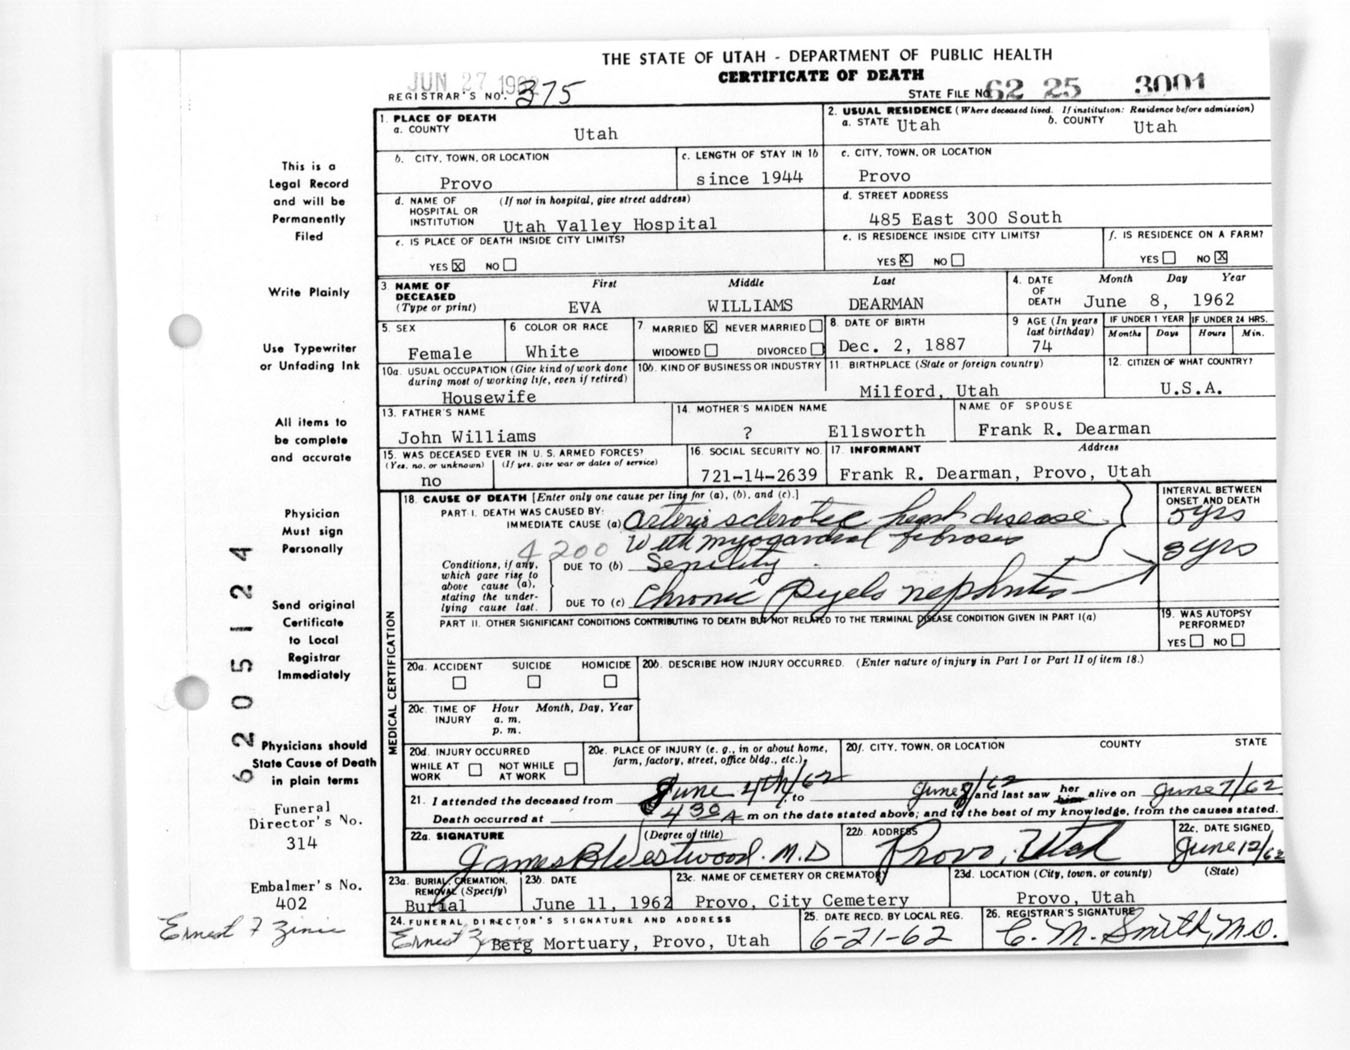 THE STATE OF UTAH - DEPARTMENT OF PUBLIC HEALTH
CERTIFICATE OF DEATH
JUN 27 1962
REGISTRAR'S NO. 375
STATE FILE NO. 62 25 3001
1. PLACE OF DEATH
a. COUNTY Utah
2. USUAL RESIDENCE (Where deceased lived. If institution: Residence before admission)
a. STATE Utah b. COUNTY Utah
b. CITY, TOWN, OR LOCATION Provo
c. LENGTH OF STAY IN 1b since 1944
c. CITY, TOWN, OR LOCATION Provo
d. NAME OF HOSPITAL OR INSTITUTION (If not in hospital, give street address) Utah Valley Hospital
d. STREET ADDRESS 485 East 300 South
e. IS PLACE OF DEATH INSIDE CITY LIMITS? YES X NO
e. IS RESIDENCE INSIDE CITY LIMITS? YES X NO
f. IS RESIDENCE ON A FARM? YES NO X
3 NAME OF DECEASED (Type or print) First Middle Last
EVA WILLIAMS DEARMAN
4. DATE OF DEATH Month Day Year June 8, 1962
5. SEX Female
6 COLOR OR RACE White
7 MARRIED X NEVER MARRIED WIDOWED DIVORCED
8. DATE OF BIRTH Dec. 2, 1887
9 AGE (In years last birthday) 74
IF UNDER 1 YEAR Months Days
IF UNDER 24 HRS. Hours Min.
10a. USUAL OCCUPATION (Give kind of work done during most of working life, even if retired) Housewife
10b. KIND OF BUSINESS OR INDUSTRY
11. BIRTHPLACE (State or foreign country) Milford, Utah
12. CITIZEN OF WHAT COUNTRY? U.S.A.
13. FATHER'S NAME John Williams
14. MOTHER'S MAIDEN NAME ? Ellsworth
NAME OF SPOUSE Frank R. Dearman
15. WAS DECEASED EVER IN U. S. ARMED FORCES? (Yes, no, or unknown) (If yes, give war or dates of service) no
16. SOCIAL SECURITY NO. 721-14-2639
17. INFORMANT Address Frank R. Dearman, Provo, Utah
MEDICAL CERTIFICATION
18. CAUSE OF DEATH [Enter only one cause per line for (a), (b), and (c).]
INTERVAL BETWEEN ONSET AND DEATH
PART I. DEATH WAS CAUSED BY:
IMMEDIATE CAUSE (a) Arterio sclerotic heart disease 5 yrs
4200 With myocardial fibrosis 3 yrs
Conditions, if any, which gave rise to above cause (a), stating the underlying cause last.
DUE TO (b) Senility
DUE TO (c) Chronic Pyelo nephritis
PART II. OTHER SIGNIFICANT CONDITIONS CONTRIBUTING TO DEATH BUT NOT RELATED TO THE TERMINAL DISEASE CONDITION GIVEN IN PART I(a)
19. WAS AUTOPSY PERFORMED? YES NO
20a. ACCIDENT SUICIDE HOMICIDE
20b. DESCRIBE HOW INJURY OCCURRED. (Enter nature of injury in Part I or Part II of item 18.)
20c. TIME OF INJURY Hour Month, Day, Year
a. m.
p. m.
20d. INJURY OCCURRED WHILE AT WORK NOT WHILE AT WORK
20e. PLACE OF INJURY (e. g., in or about home, farm, factory, street, office bldg., etc.)
20f. CITY, TOWN, OR LOCATION COUNTY STATE
21. I attended the deceased from June 4th/62, to June 8/62 and last saw her him alive on June 7/62
Death occurred at 4 30 A m on the date stated above; and to the best of my knowledge, from the causes stated.
22a. SIGNATURE (Degree of title) James B Westwood. M.D
22b. ADDRESS Provo, Utah
22c. DATE SIGNED June 12/62
23a. BURIAL, CREMATION, REMOVAL (Specify) Burial
23b. DATE June 11, 1962
23c. NAME OF CEMETERY OR CREMATORY Provo, City Cemetery
23d. LOCATION (City, town, or county) (State) Provo, Utah
24. FUNERAL DIRECTOR'S SIGNATURE AND ADDRESS Ernest Berg Mortuary, Provo, Utah
25. DATE RECD. BY LOCAL REG. 6-21-62
26. REGISTRAR'S SIGNATURE C. M. Smith, M.D.
This is a
Legal Record
and will be
Permanently
Filed
Write Plainly
Use Typewriter
or Unfading Ink
All items to
be complete
and accurate
Physician
Must sign
Personally
Send original
Certificate
to Local
Registrar
Immediately
Physicians should
State Cause of Death
in plain terms
Funeral
Director's No.
314
Embalmer's No.
402
Ernest F
62 05124